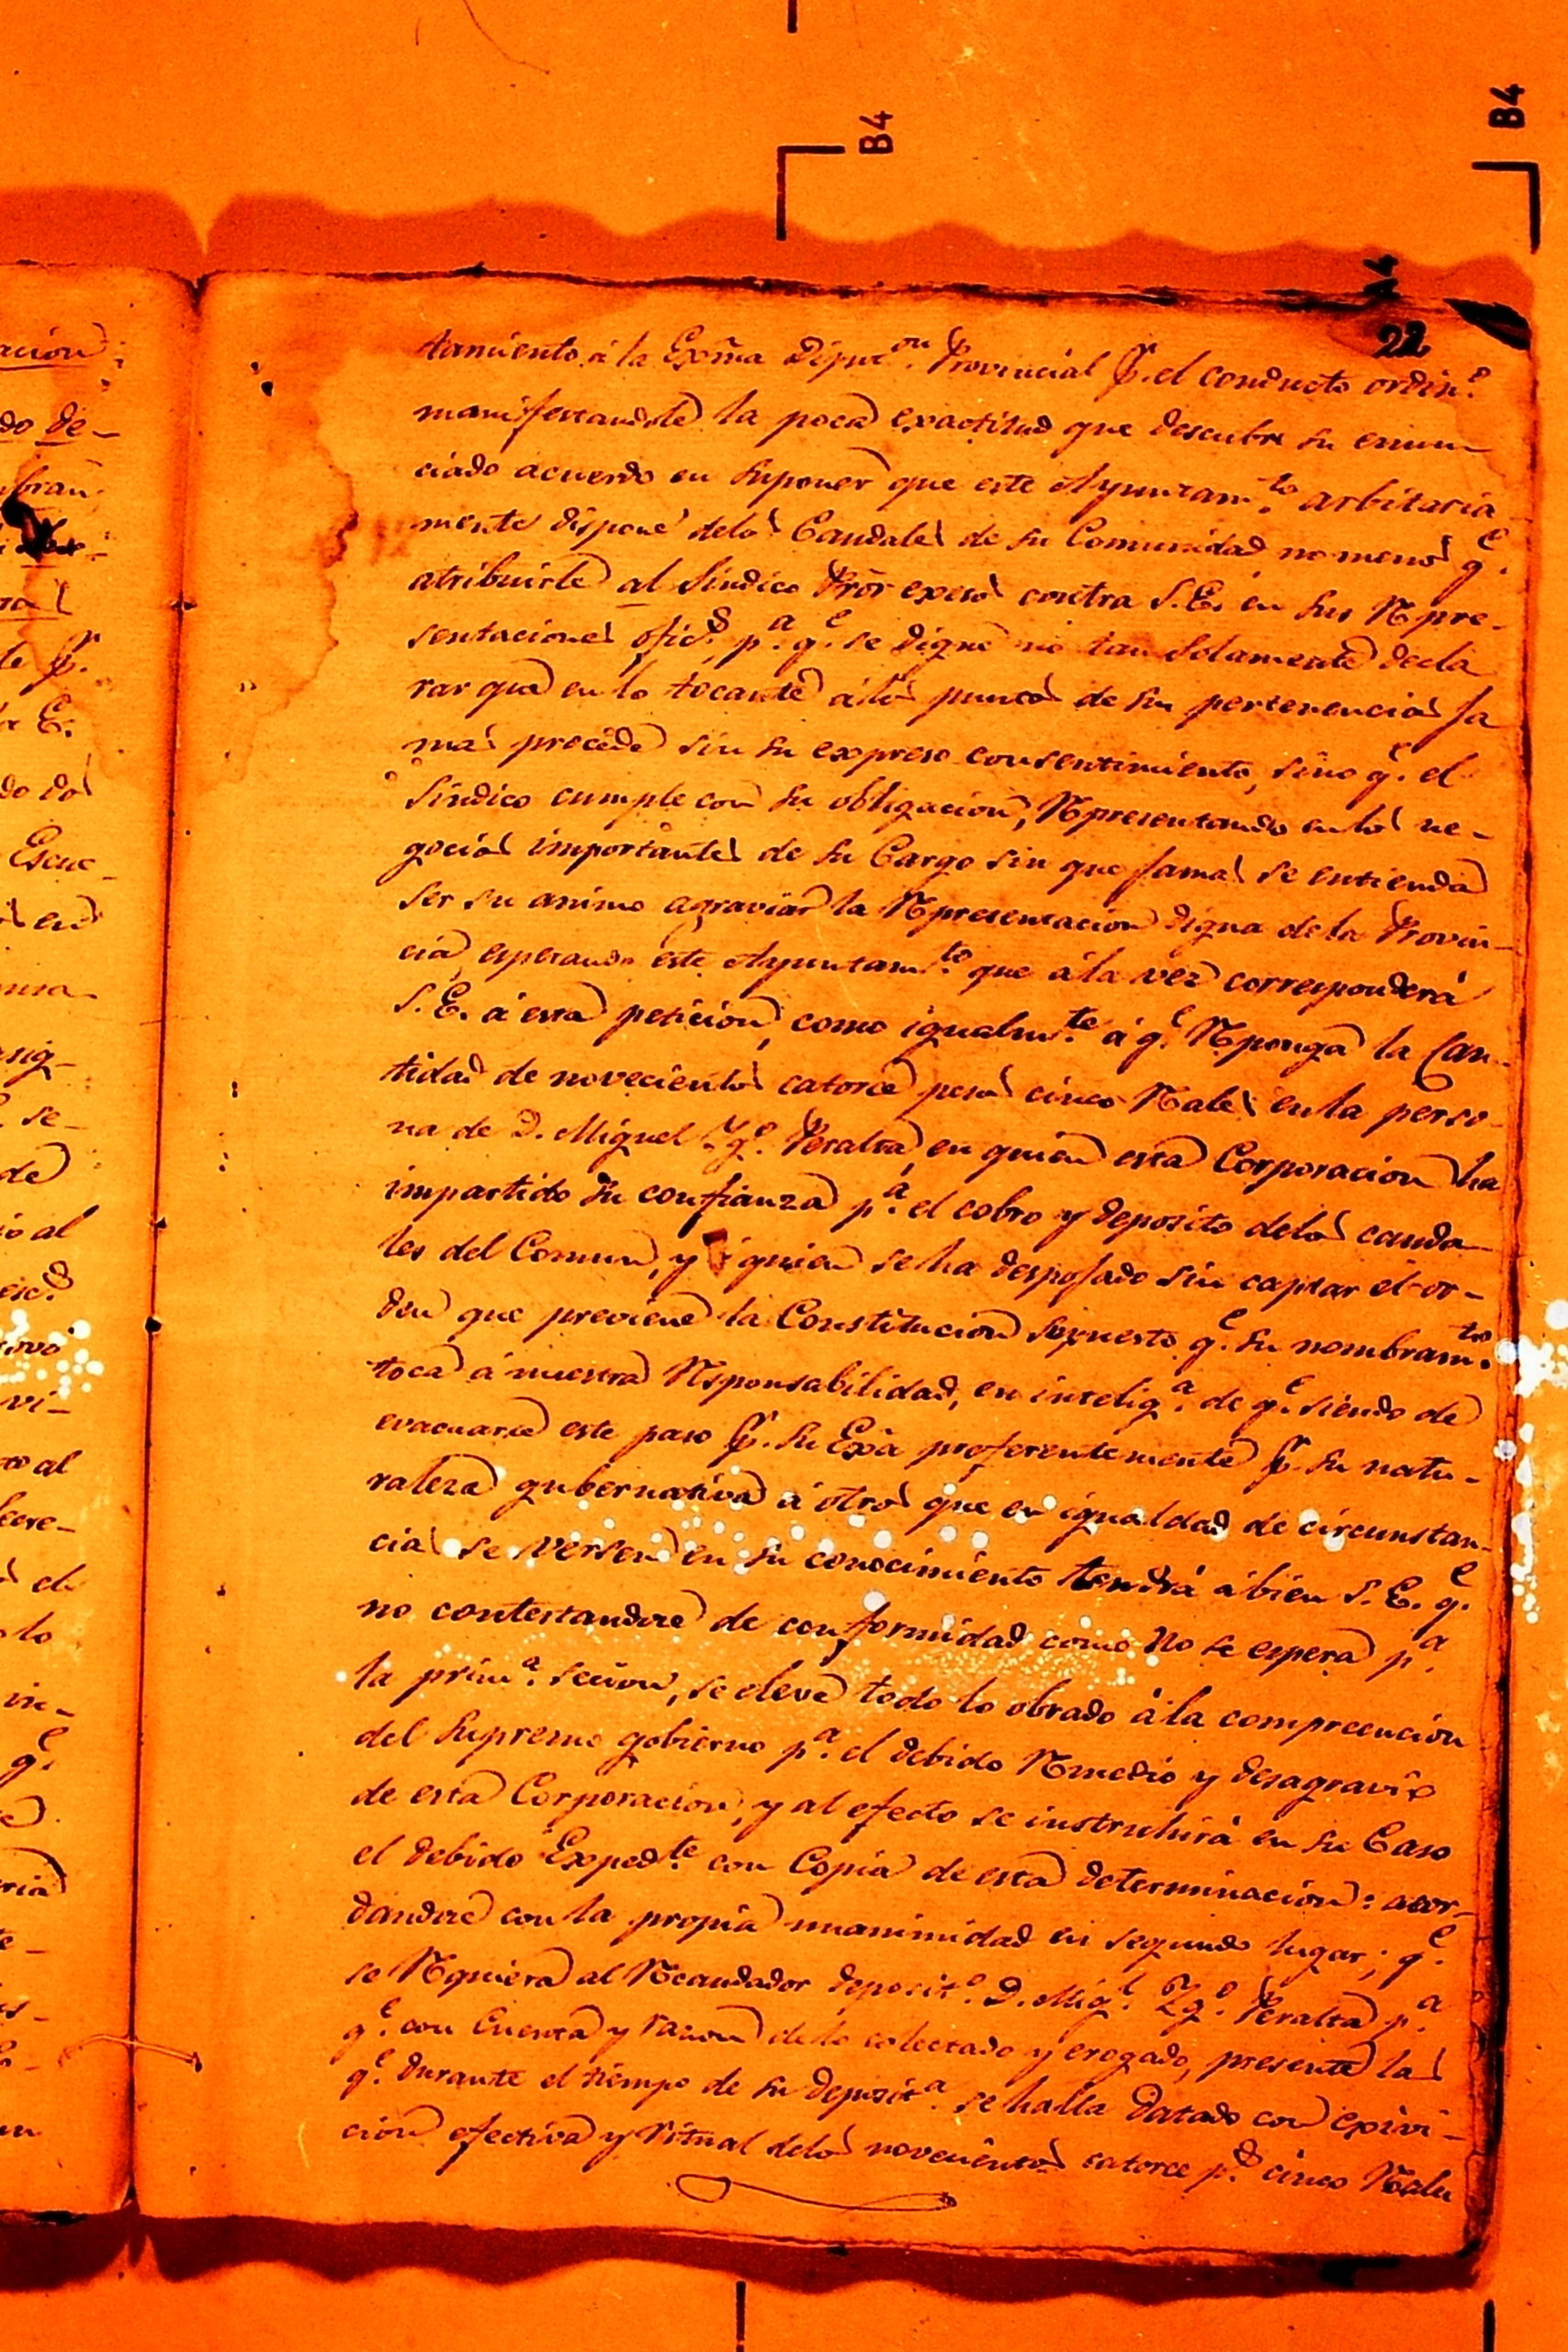 B4
B4
22
tamiento á la Exma Diput.on Provincial p.r el conducto ordin.o
manifestandole la poca exactitud que descubre su enun-
ciado acuerdo en suponer que este Ayuntam.to arbitaria
mente dispone delos Caudales de su Comunidad no menos q.e
atribuirle al Sindico Pror exesos contra S.E. en sus Repre-
sentaciones ofic.s p.a q.e se digne no tan solamente decla
rar que en lo tocante álos puntos de su pertenencia ja
mas procede sin su expreso consentimiento, sino q.e el
Sindico cumple con su obligacion, Representando en los ne-
gocios importantes de su Cargo sin que jamas se entienda
ser su animo agraviar la Representacion digna de la Provin-
cia, esperando este Ayuntam.to que á la vez corresponderá
S.E. á esta peticion, como igualm.te á q.e Reponga la Can-
tidad de novecientos catorce pesos cinco Reales en la perso-
na de D. Miguel Yg.o Peralta, en quien esta Corporacion ha
impartido su confianza p.a el cobro y deposito delos cauda-
les del Comun, y á quien se ha despojado sin captar el or-
den que previene la Constitucion supuesto q.e su nombram.to
toca á nuestra Responsabilidad, en intelig.a de q.e siendo de
evacuarse este paso p.r su Exa preferentemente p.r su natu-
raleza gubernativa á otros que en igualdad de circunstan-
cias se versen en su conocimiento tendrá á bien S.E. q.e
no contestandose de conformidad como no se espera p.a
la prim.a secion, se eleve todo lo obrado á la compreencion
del Supremo gobierno p.a el debido Remedio y desagravio
de esta Corporacion, y al efecto se instruhirá en su Caso
el debido Exped.te con Copia de esta determinacion: acor-
dandose con la propia unanimidad en segundo lugar; q.e
se Requiera al Recaudador deposit.o D. Mig.l Yg.o Peralta p.a
q.e con Cuenta y razon de lo colectado y erogado, presente las
q.e durante el tiempo de su deposit.a se halla datado con exivi-
cion efectiva y ritual delos novecientos catorce p.s cinco Reales